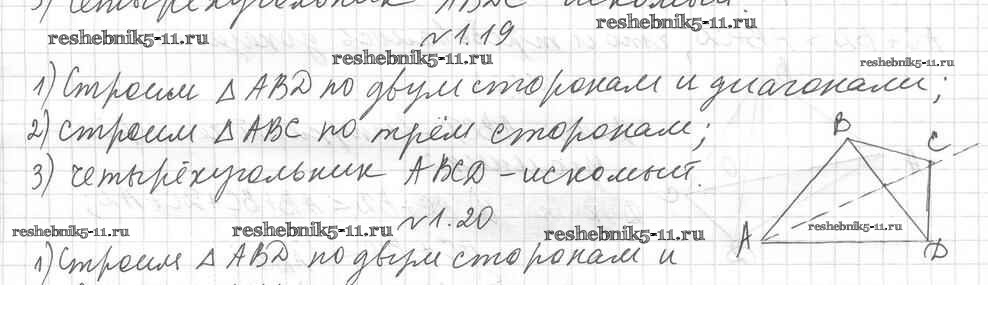 3) четырёхугольник ABDC - искомый.
reshebnik5-11.ru
reshebnik5-11.ru
№1.19
reshebnik5-11.ru
reshebnik5-11.ru
1) Строим △ ABD по двум сторонам и диагонали;
2) строим △ ABC по трём сторонам;
3) четырёхугольник ABCD - искомый.
B
C
A
D
№1.20
reshebnik5-11.ru
reshebnik5-11.ru
reshebnik5-11.ru
reshebnik5-11.ru
1) Строим △ ABD по двум сторонам и